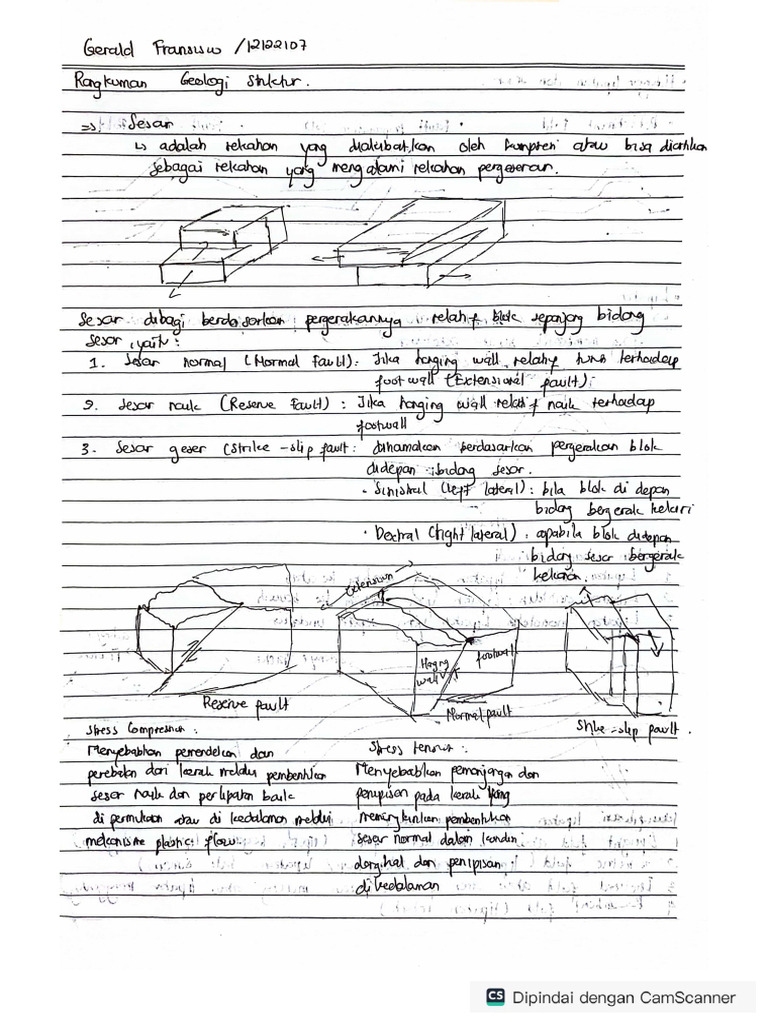 Gerald Fransisco /12122107
Rangkuman Geologi Struktur.
=> Sesar
↳ adalah rekahan yang diakibatkan oleh kompresi atau bisa diartikan
sebagai rekahan yang mengalami rekahan pergeseran.
Sesar dibagi berdasarkan pergerakannya relatif blok sepanjang bidang
sesar, yaitu :
1. Sesar normal (Normal Fault) : Jika hanging wall relatif turun terhadap
foot wall (Extensional fault) ;
2. Sesar naik (Reserve fault) : Jika hanging wall relatif naik terhadap
footwall
3. Sesar geser (Strike-slip fault : dinamakan berdasarkan pergerakan blok
didepan bidang sesar.
• Sinistral (left lateral) : bila blok di depan
bidang bergerak kekiri
• Dextral (right lateral) : apabila blok didepan
bidang sesar bergerak
kekanan.
Extension
Haging
wall
footwall
Reserve fault
Normal fault
Strike-slip fault.
Stress Compression :
Menyebabkan pemendekan dan
penebalan dari kerak melalui pembentukan
sesar naik dan perlipatan baik
di permukaan atau di kedalaman melalui
mekanisme plastic flow
Stress tension :
Menyebabkan pemanjangan dan
penipisan pada kerak yang
memungkinkan pembentukan
sesar normal dalam kondisi
dangkal dan penipisan
di kedalaman
CS Dipindai dengan CamScanner